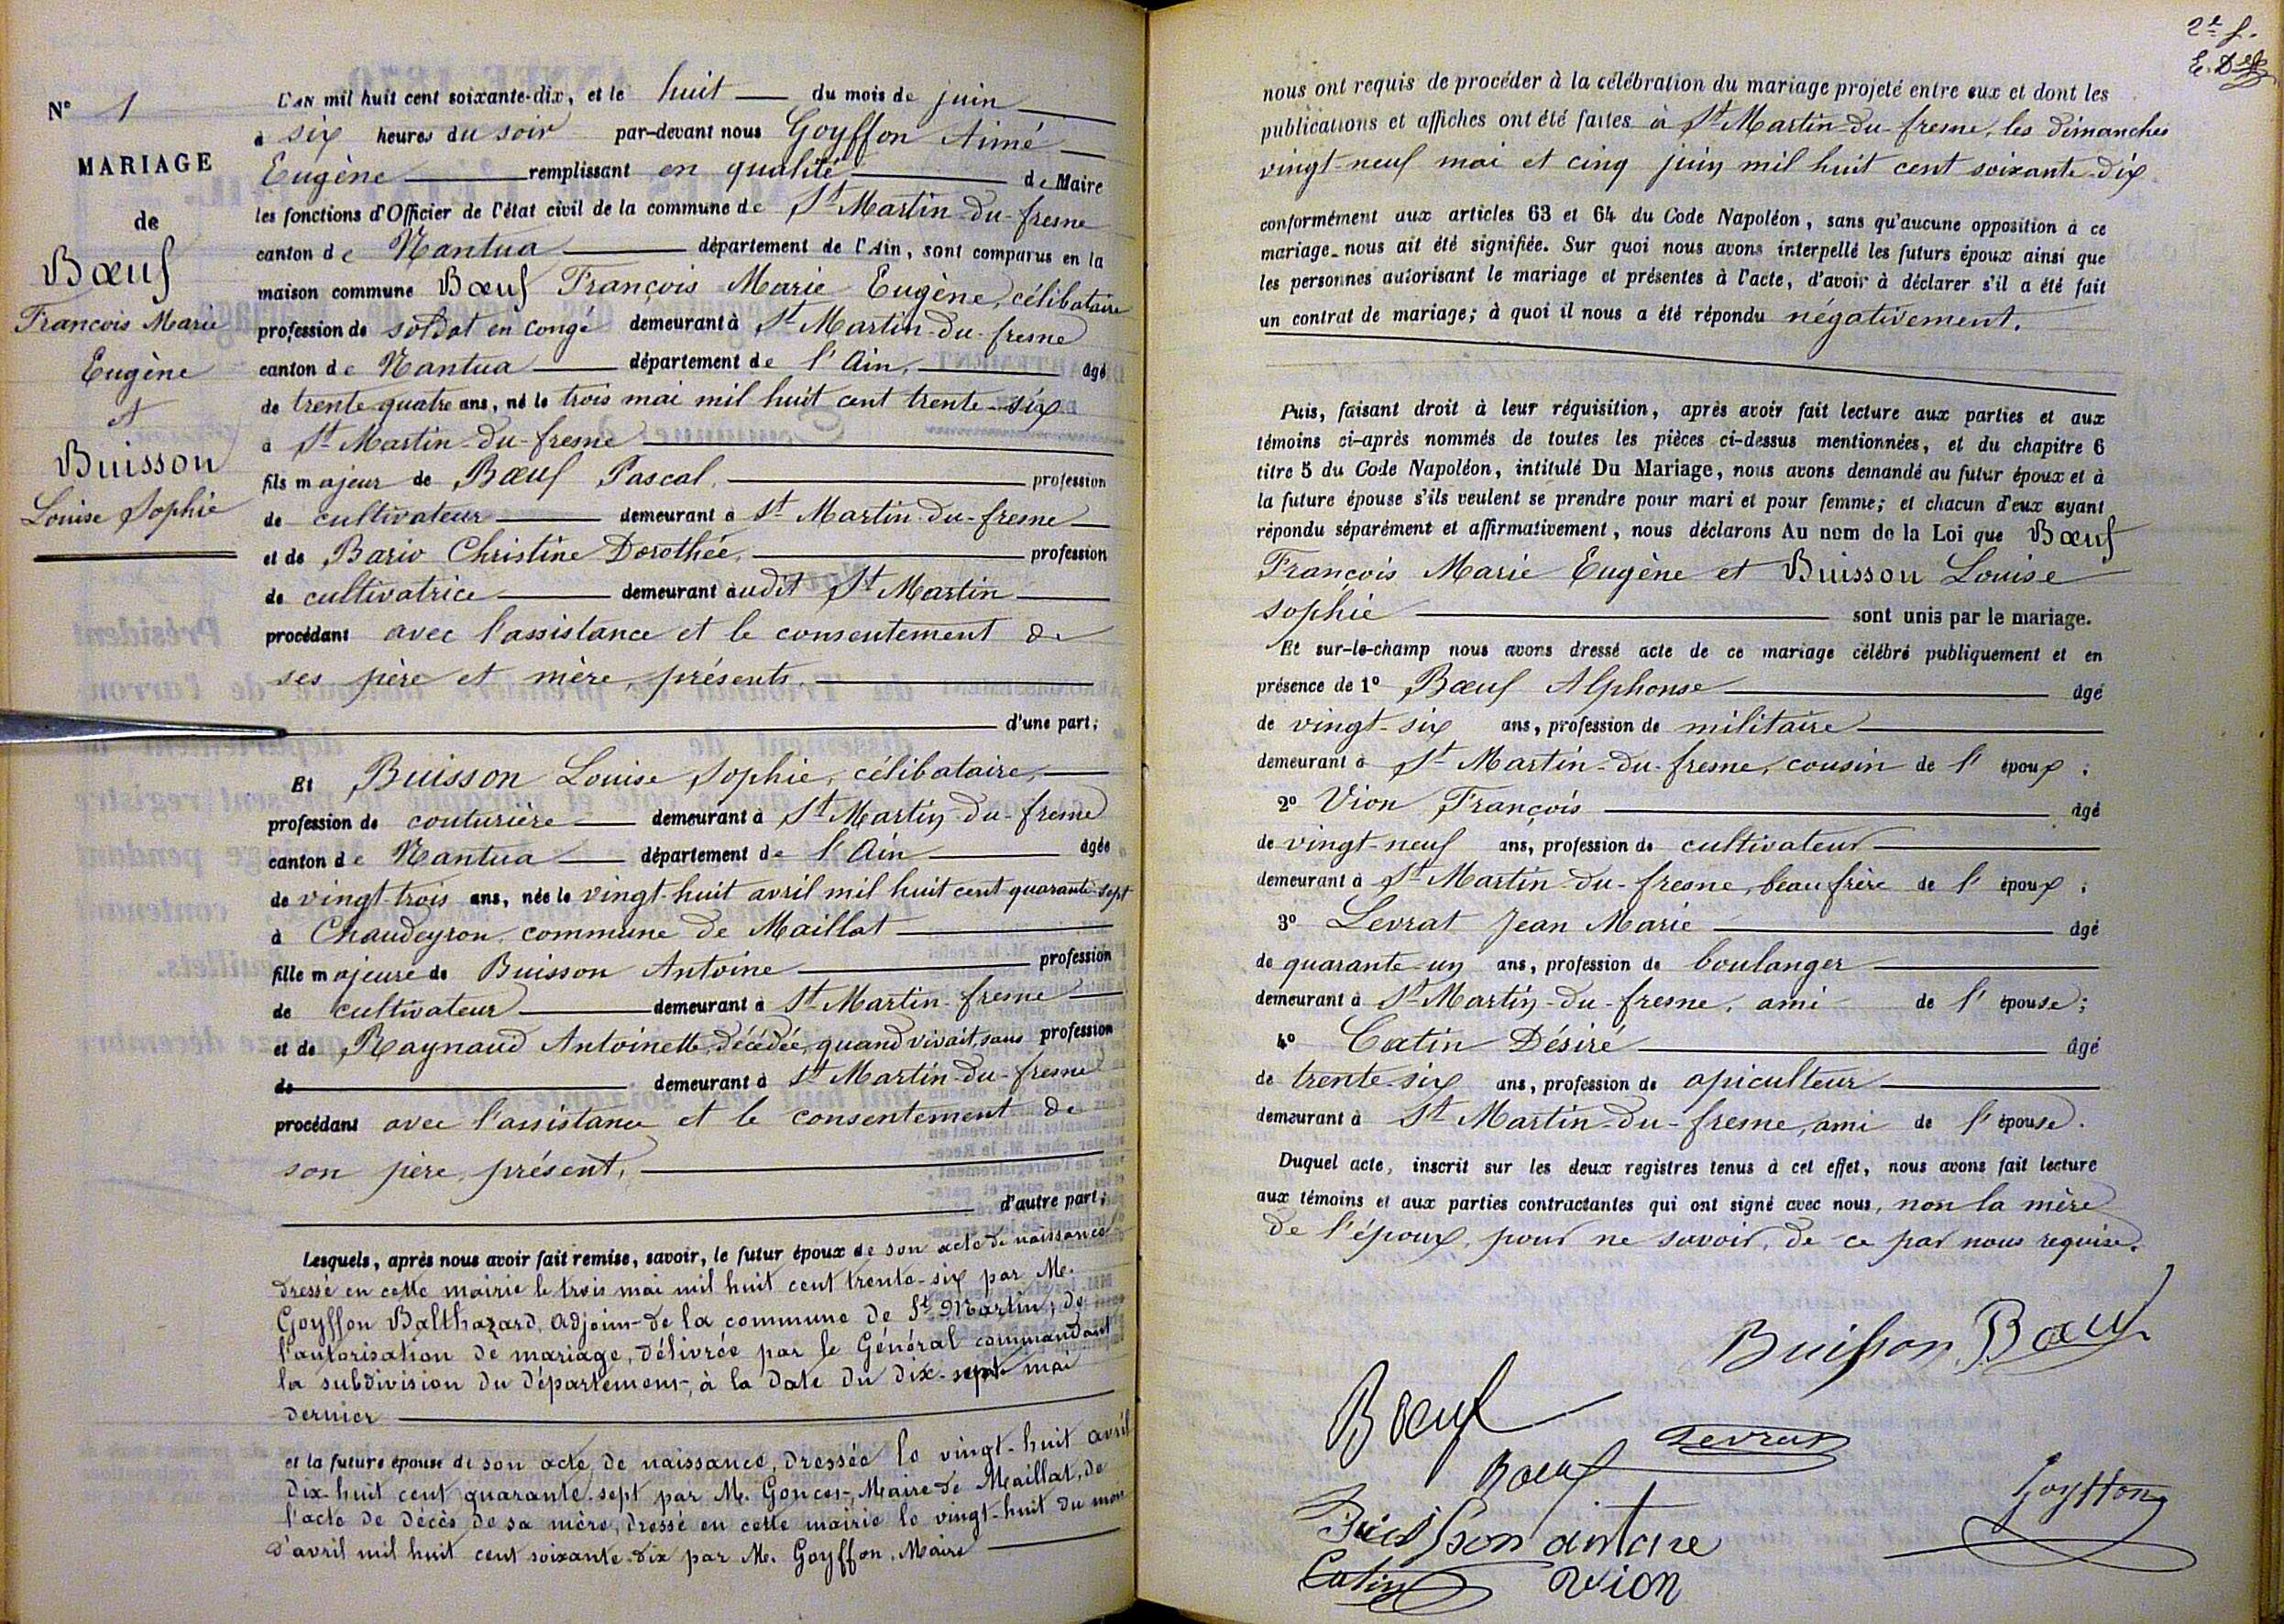 N° 1
MARIAGE
de
Bœuf
François Marie
Eugène
et
Buisson
Louise Sophie
L'AN mil huit cent soixante-dix, et le huit du mois de juin
à six heures du soir par-devant nous Goyffon Aimé
Eugène remplissant en qualité de Maire
les fonctions d'Officier de l'état civil de la commune de St Martin-du-fresne
canton de Nantua département de l'Ain, sont comparus en la
maison commune Bœuf François Marie Eugène, célibataire
profession de soldat en congé demeurant à St Martin-du-fresne
canton de Nantua département de l'Ain, âgé
de trente quatre ans, né le trois mai mil huit cent trente-six
à St Martin-du-fresne
fils majeur de Bœuf Pascal, profession
de cultivateur demeurant à St Martin-du-fresne
et de Bariod Christine Dorothée, profession
de cultivatrice demeurant audit St Martin
procédant avec l'assistance et le consentement de
ses père et mère, présents.
d'une part;
Et Buisson Louise Sophie, célibataire,
profession de couturière demeurant à St Martin-du-fresne
canton de Nantua département de l'Ain âgée
de vingt-trois ans, née le vingt-huit avril mil huit cent quarante-sept
à Chaudeyron, commune de Maillat
fille majeure de Buisson Antoine profession
de cultivateur demeurant à St Martin-fresne
et de Raynaud Antoinette, décédée, quand vivait, sans profession
de demeurant à St Martin-du-fresne
procédant avec l'assistance et le consentement de
son père, présent,
d'autre part;
Lesquels, après nous avoir fait remise, savoir, le futur époux de son acte de naissance
dressé en cette mairie le trois mai mil huit cent trente-six par M.
Goyffon Balthazard, adjoint de la commune de St Martin, de
l'autorisation de mariage, délivrée par le Général commandant
la subdivision du département, à la date du dix-sept mai
dernier
et la future épouse de son acte de naissance, dressée le vingt-huit avril
dix-huit cent quarante-sept par M. Goncet, Maire de Maillat, de
l'acte de décès de sa mère, dressé en cette mairie le vingt-huit du mois
d'avril mil huit cent soixante-dix par M. Goyffon, Maire
2e f.
nous ont requis de procéder à la célébration du mariage projeté entre eux et dont les
publications et affiches ont été faites à St Martin-du-fresne, les dimanches
vingt-neuf mai et cinq juin mil huit cent soixante-dix
conformément aux articles 63 et 64 du Code Napoléon, sans qu'aucune opposition à ce
mariage nous ait été signifiée. Sur quoi nous avons interpellé les futurs époux ainsi que
les personnes autorisant le mariage et présentes à l'acte, d'avoir à déclarer s'il a été fait
un contrat de mariage; à quoi il nous a été répondu négativement.
Puis, faisant droit à leur réquisition, après avoir fait lecture aux parties et aux
témoins ci-après nommés de toutes les pièces ci-dessus mentionnées, et du chapitre 6
titre 5 du Code Napoléon, intitulé Du Mariage, nous avons demandé au futur époux et à
la future épouse s'ils veulent se prendre pour mari et pour femme; et chacun d'eux ayant
répondu séparément et affirmativement, nous déclarons Au nom de la Loi que Bœuf
François Marie Eugène et Buisson Louise
Sophie sont unis par le mariage.
Et sur-le-champ nous avons dressé acte de ce mariage célébré publiquement et en
présence de 1° Bœuf Alphonse âgé
de vingt-six ans, profession de militaire
demeurant à St Martin-du-fresne, cousin de l'époux;
2° Vion François âgé
de vingt-neuf ans, profession de cultivateur
demeurant à St Martin-du-fresne, beau frère de l'époux;
3° Levrat Jean Marie âgé
de quarante-un ans, profession de boulanger
demeurant à St Martin-du-fresne, ami de l'épouse;
4° Catin Désiré âgé
de trente-six ans, profession de apiculteur
demeurant à St Martin-du-fresne, ami de l'épouse.
Duquel acte, inscrit sur les deux registres tenus à cet effet, nous avons fait lecture
aux témoins et aux parties contractantes qui ont signé avec nous, non la mère
de l'époux, pour ne savoir, de ce par nous requise.
Buisson Bœuf
Bœuf Levrat
Bœuf
Goyffon
Buisson antoine
Catin vion